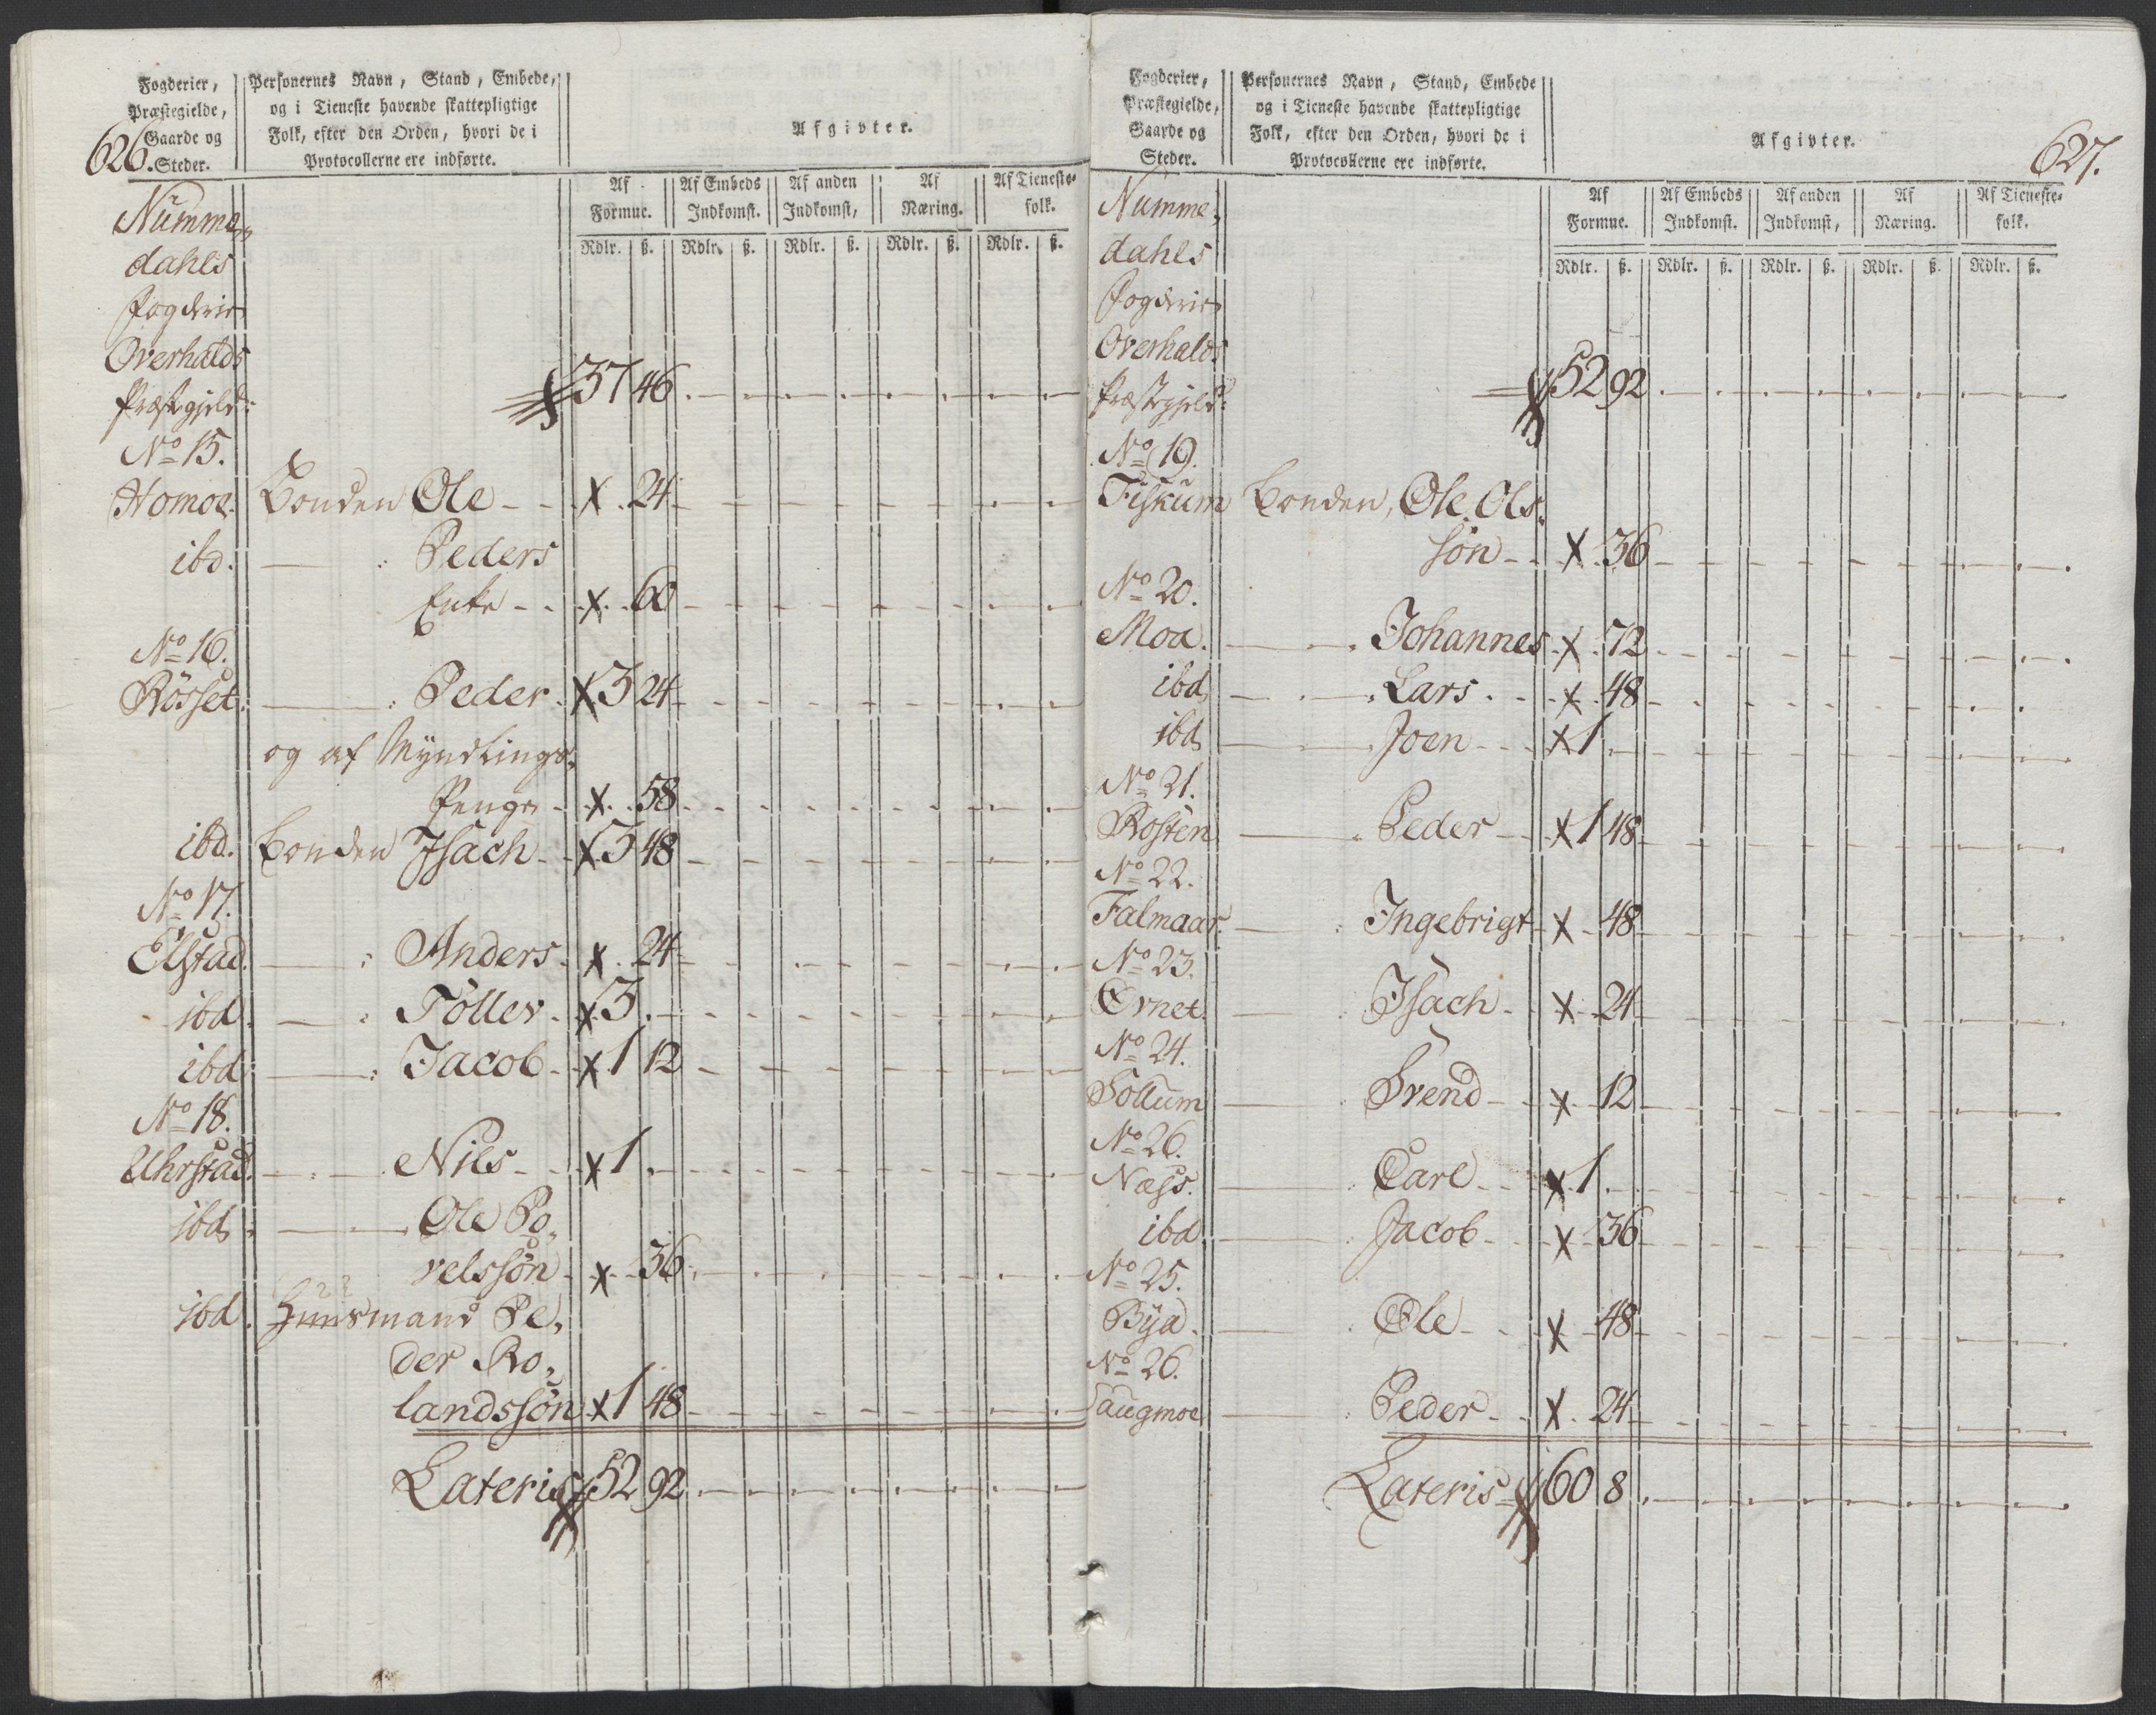 626.
Fogderier,
Præstegielde,
Gaarde og
Steder.
Personernes Navn, Stand, Embede,
og i Tieneste havende skattepligtige
Folk, efter den Orden, hvori de i
Protocollerne ere indførte.
Afgivter.
Af Formue. Af Embeds Indkomst. Af anden Indkomst, Af Næring. Af Tieneste-folk.
Rdlr. ß. Rdlr. ß. Rdlr. ß. Rdlr. ß. Rdlr. ß.
Numme-
dahls
Fogderie
Overhalds
Præstegjeld: 37 46
No 15.
Homoe. Bonden Ole - - X 24
ibd. — : Peders
Enke - - X 60
No 16.
Rösset: — : Peder - X 3 24
og af Myndlings-
Penge - X 58
ibd. Bonden Isach - X 3 48
No 17.
Elstad. — : Anders - X 24
ibd. — : Töller - X 3
ibd: — : Jacob - X 1 12
No 18.
Uhrstad. — Nils - - X 1
ibd: — Ole Po-
velssön - X 36
ibd. Huusmand Pe-
der Ro-
landssön X 1 48
Lateris 52 92
627.
Fogderier,
Præstegielde,
Gaarde og
Steder.
Personernes Navn, Stand, Embede
og i Tieneste havende skattepligtige
Folk, efter den Orden, hvori de i
Protocollerne ere indførte.
Afgivter.
Af Formue. Af Embeds Indkomst. Af anden Indkomst, Af Næring. Af Tieneste-folk.
Rdlr. ß. Rdlr. ß. Rdlr. ß. Rdlr. ß. Rdlr. ß.
Numme-
dahls
Fogderie
Overhalds
Præstegjeld: 52 92
No 19.
Fiskum Bonden, Ole Ols-
sön - - X 36
No 20.
Moa. — Johannes X 72
ibd — Lars - - X 48
ibd — Joen - - X 1
No 21.
Rosten — Peder - - X 1 48
No 22.
Falmaar. — : Ingebrigt - X 48
No 23.
Ørnet. — Isach - X 24
No 24.
Sollum — Svend - - X 12
No 26.
Næss. — Carl - - X 1
ibd. — Jacob - - X 36
No 25.
Bÿa. — Ole - - X 48
No 26.
Saugmoe — Peder - - X 24
Lateris 60 8